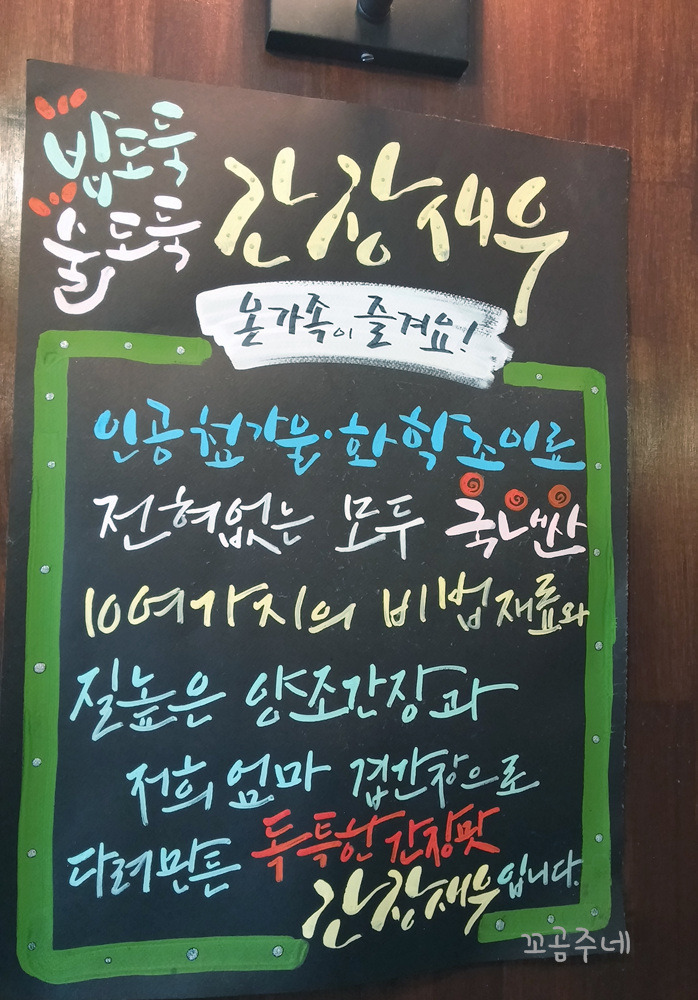 밥도둑
술도둑
간장새우
온가족이 즐겨요!
인공첨가물·화학조미료
전혀없는 모두 국내산
10여가지의 비법재료와
질높은 양조간장과
저희 엄마 겹간장으로
다려만든 독특한 간장맛
간장새우입니다.
꼬곰주네